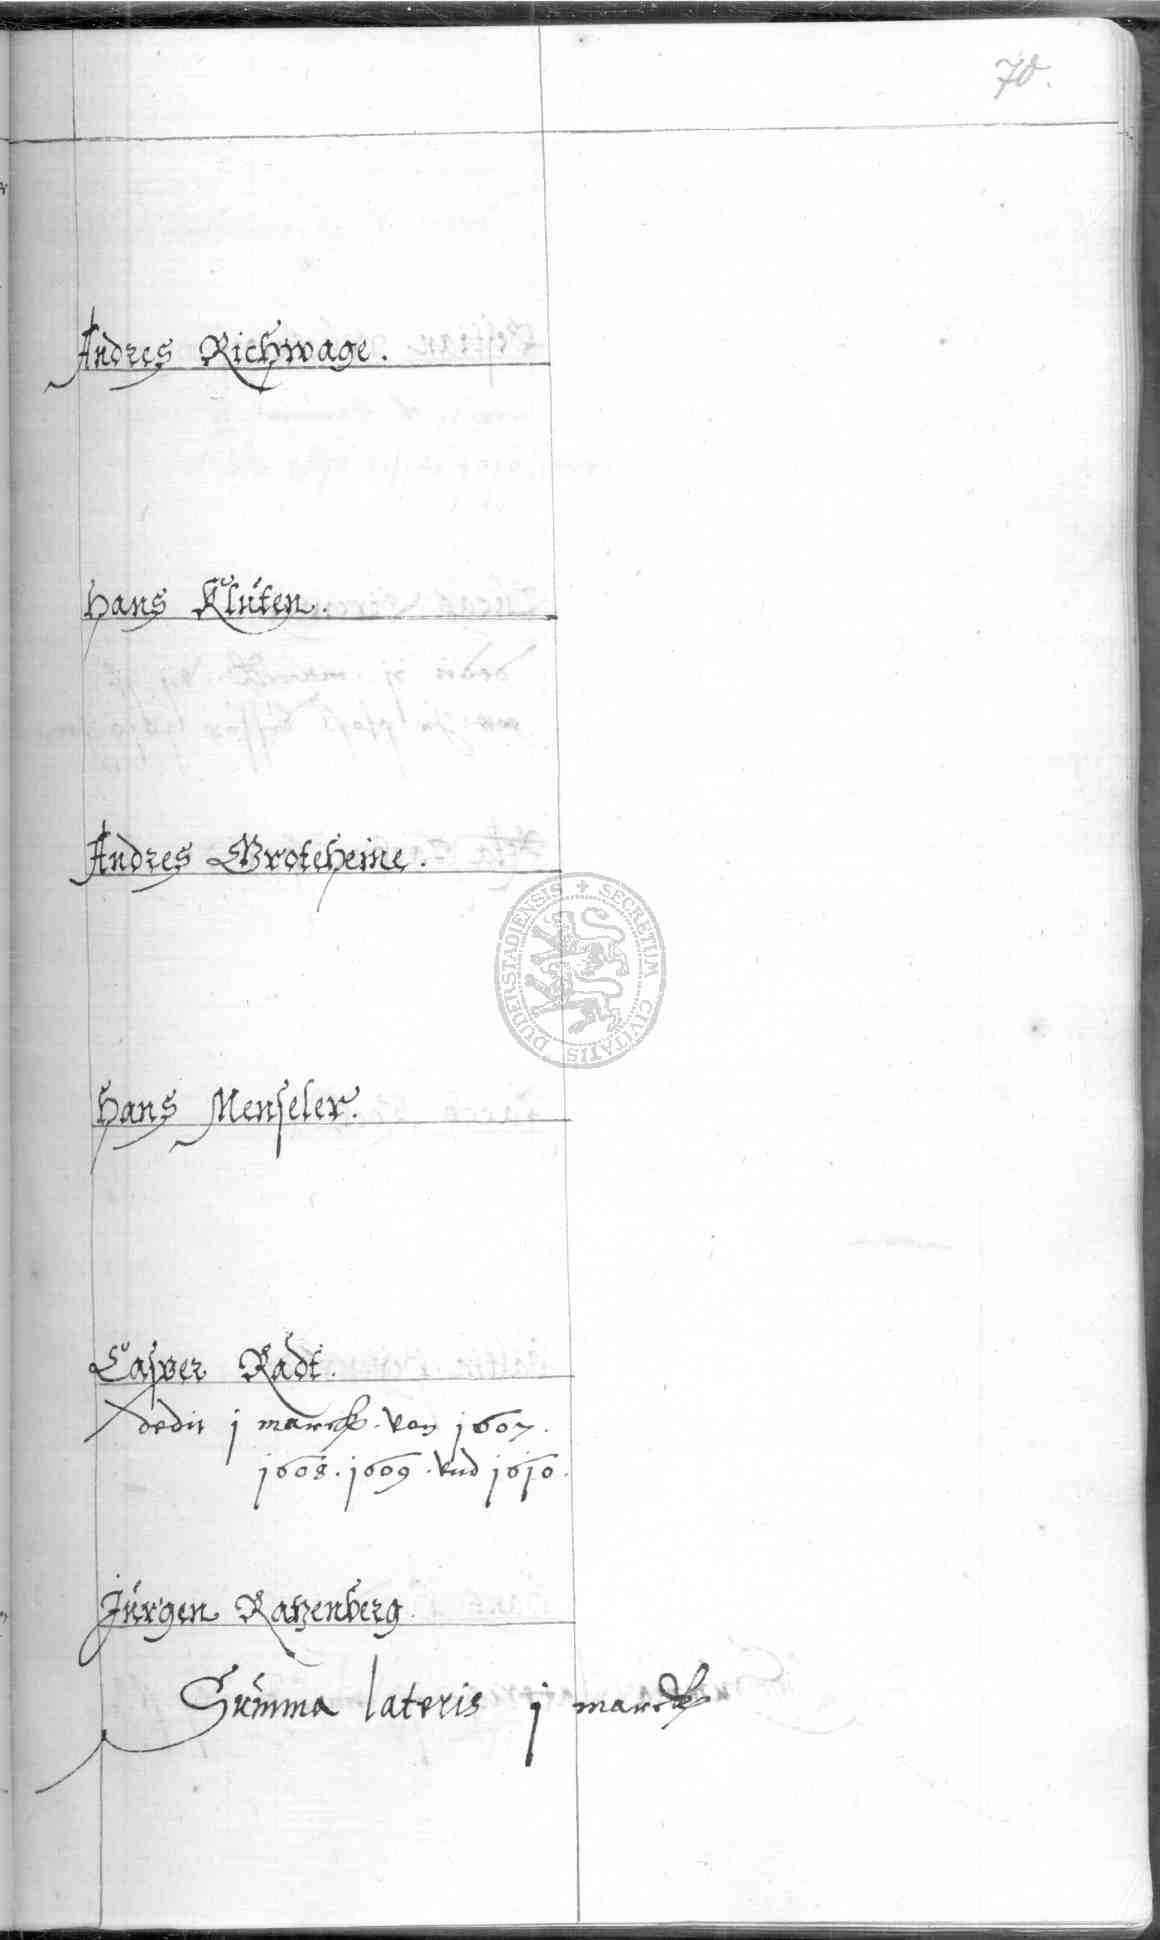 70.
Andres Richwage.
Hans Klüten.
Andres Groteheine.
Hans Menseler.
Casper Radt.
dedit j marck. von 1607.
1608. 1609. vnd 1610.
Jürgen Ratzenberg.
Summa lateris j marck
SECRETUM CIVITATIS DUDERSTADIENSIS